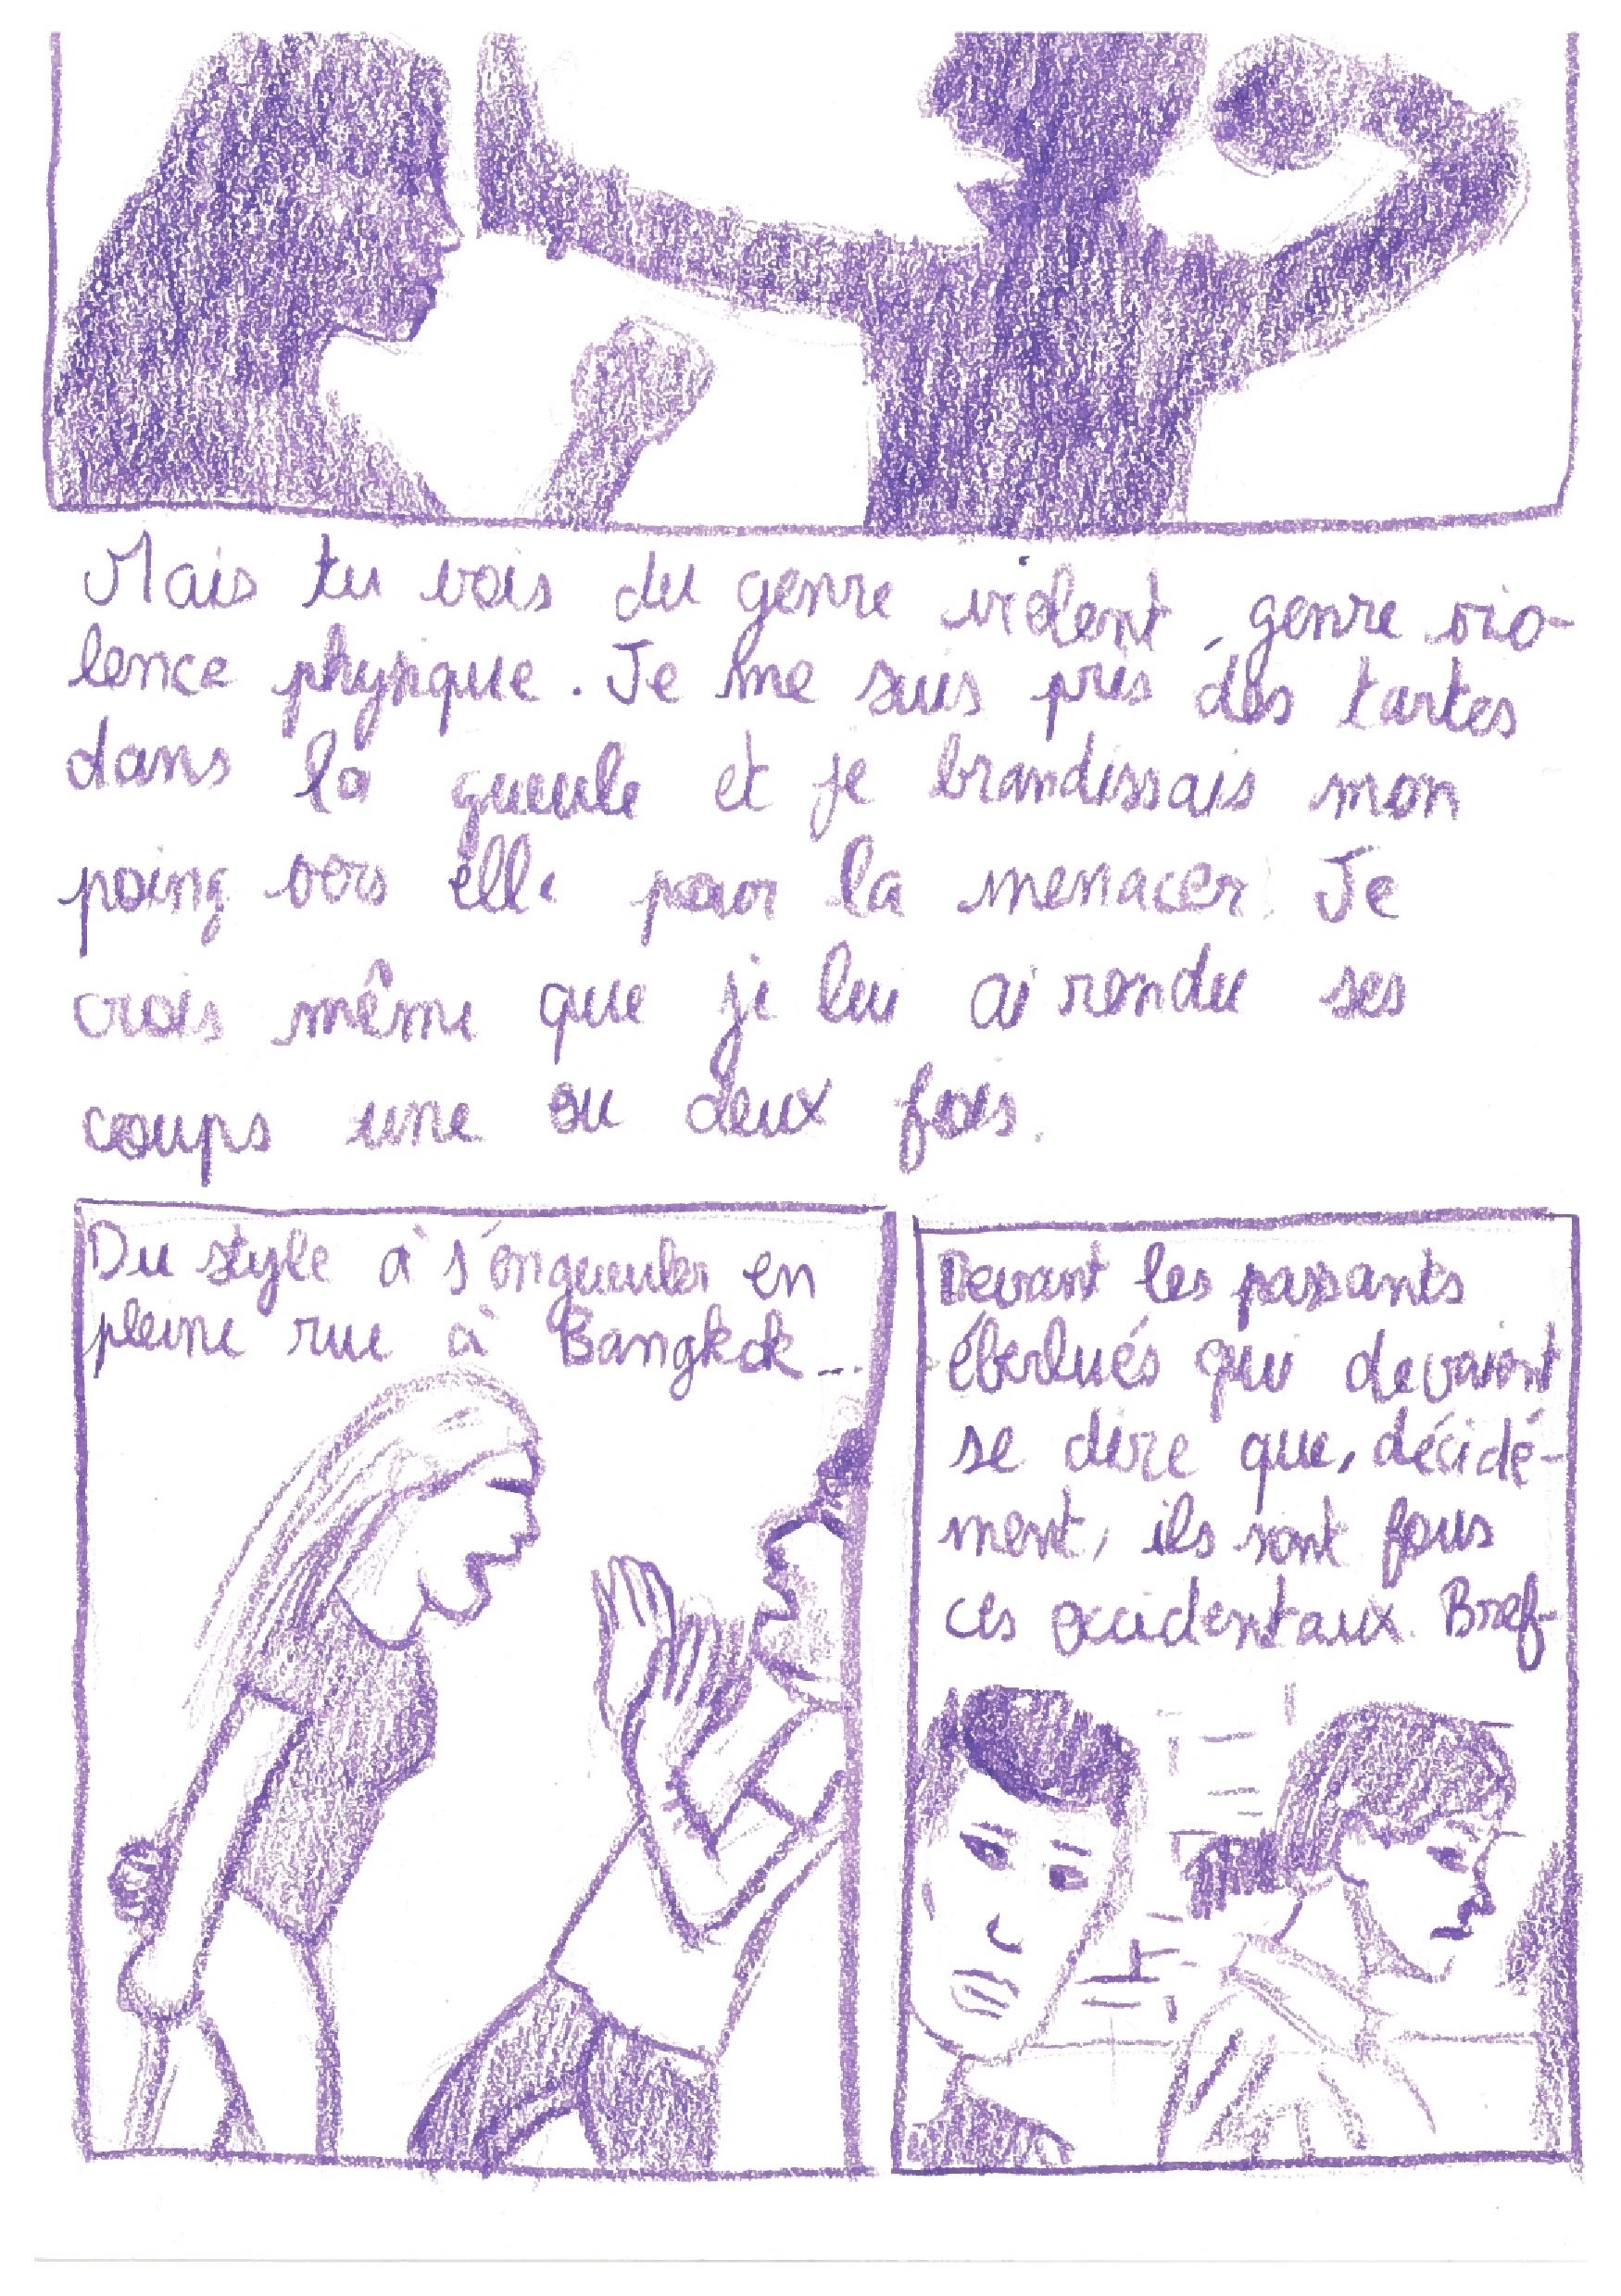 Mais tu vois du genre violent, genre vio-
lence physique. Je me suis pris des tartes
dans la gueule et je brandissais mon
poing vers elle pour la menacer. Je
crois même que je lui ai rendu ses
coups une ou deux fois.
Du style à s'engueuler en
pleine rue à Bangkok...
Devant les passants
éberlués qui devaient
se dire que, décidé-
ment, ils sont fous
ces occidentaux. Bref-